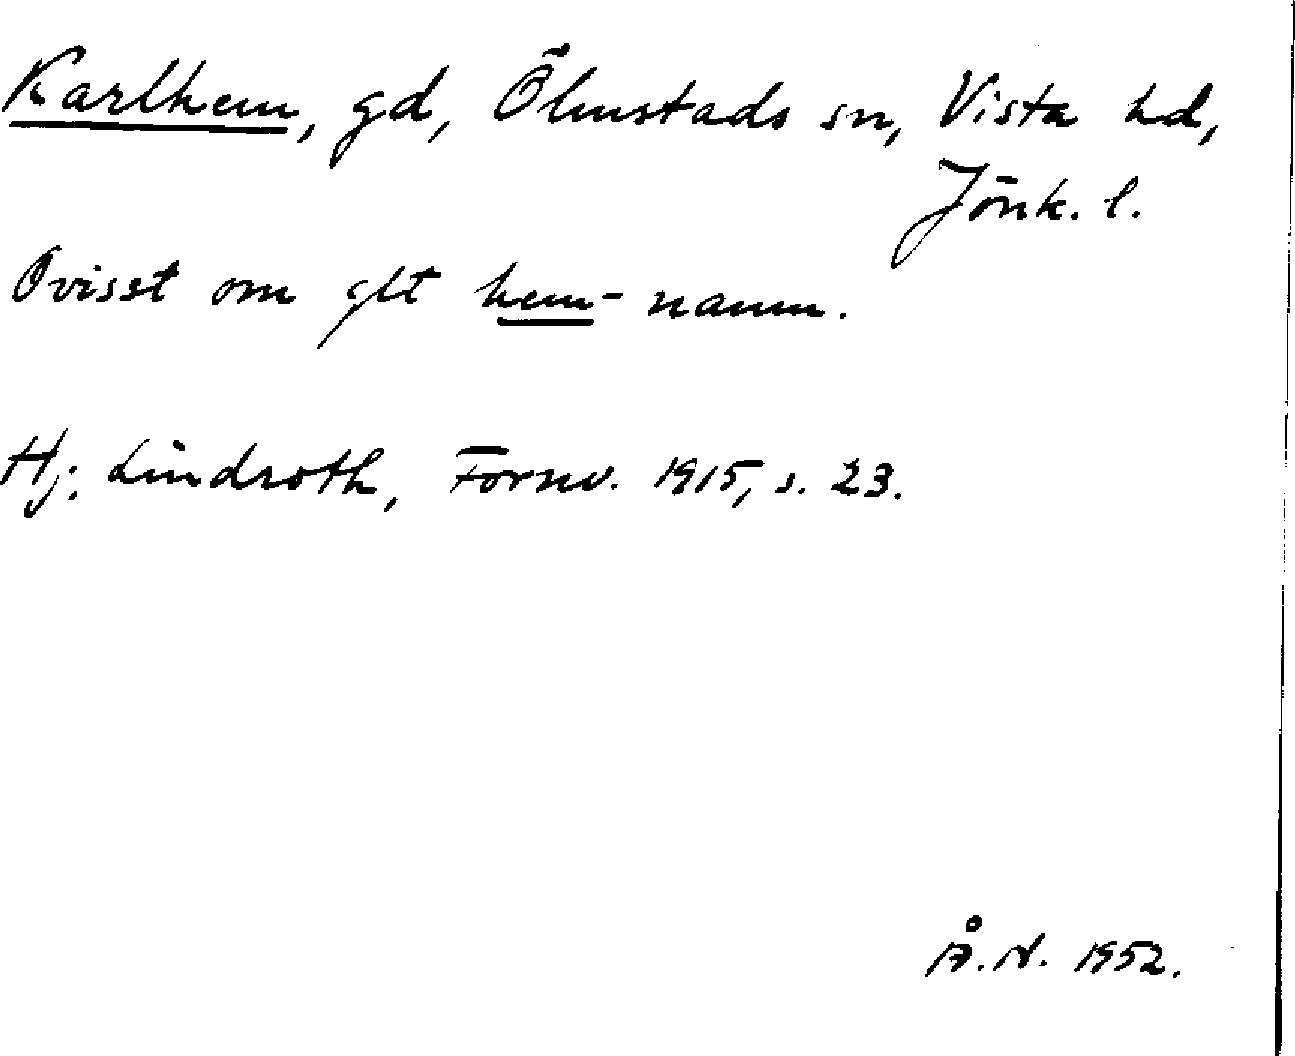 Karlhem, gd, Ölmstads sn, Vista hd,
Jönk. l.
Ovisst om glt hem-namn.
Hj. Lindroth, Fornv. 1915, s. 23.
Å. N. 1952.